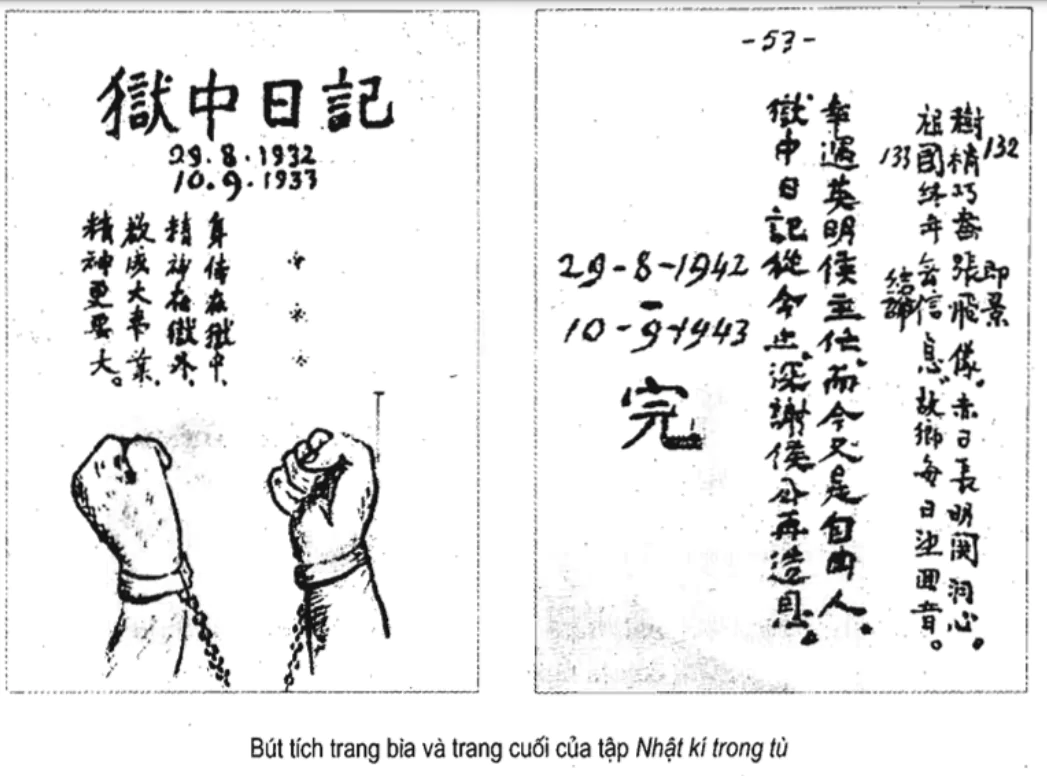 獄中日記
29.8.1932
10.9.1933
身体在獄中,
精神在獄外,
欲成大事業,
精神更要大。
-53-
132
即景
樹梢巧畫張飛像。赤日長明関羽心。
祖國終年無信息。故鄉每日望回音。
133
結論
幸遇英明侯主任。而今又是自由人。
獄中日記從今止。深謝侯公再造恩。
29-8-1942
-
10-9-1943
完
Bút tích trang bìa và trang cuối của tập Nhật kí trong tù